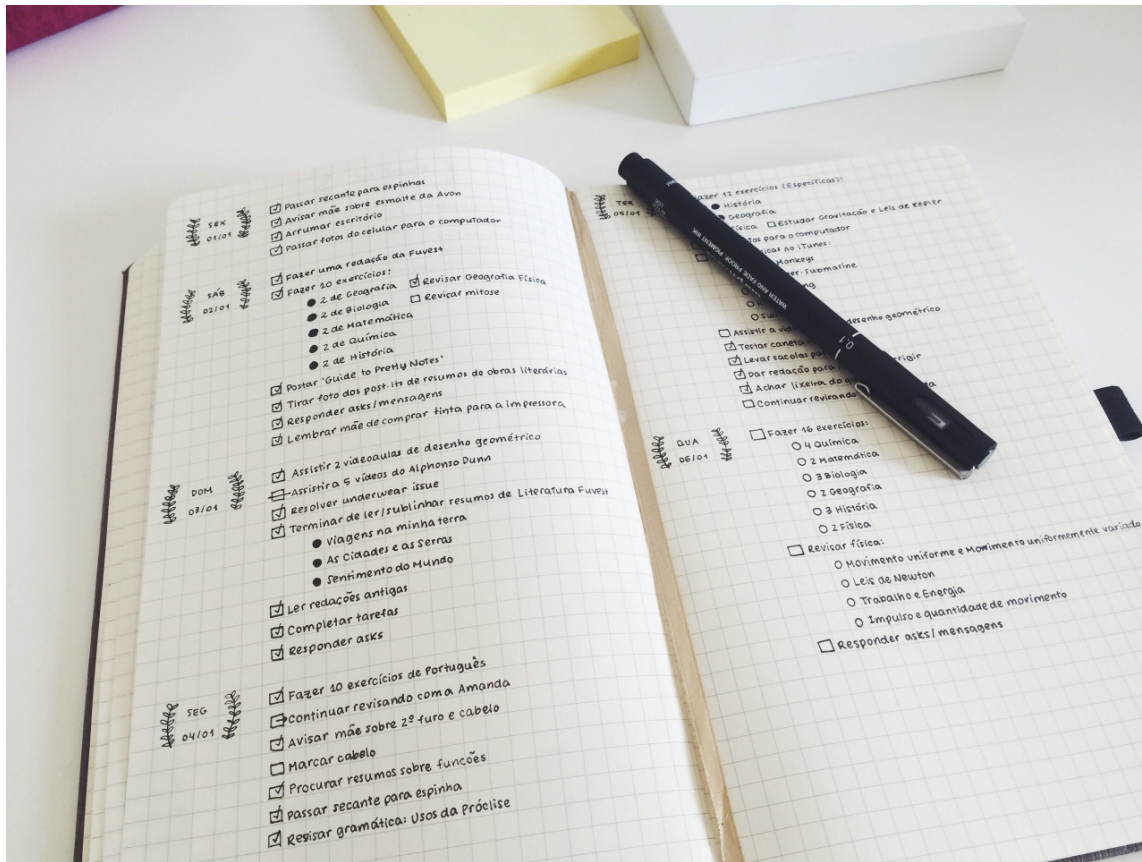 SEX
01/01
Passar secante para espinhas
Avisar mãe sobre esmalte da Avon
Arrumar escritório
Passar fotos do celular para o computador
SÁB
02/01
Fazer uma redação da Fuvest
Fazer 10 exercícios:
2 de Geografia Revisar Geografia Física
2 de Biologia Revisar mitose
2 de Matemática
2 de Química
2 de História
Postar 'Guide to Pretty Notes'
Tirar foto dos post-its de resumos de obras literárias
Responder asks/mensagens
Lembrar mãe de comprar tinta para a impressora
DOM
03/01
Assistir 2 videoaulas de desenho geométrico
Assistir a 5 vídeos do Alphonso Dunn
Resolver underwear issue
Terminar de ler/sublinhar resumos de Literatura Fuvest
Viagens na minha terra
As Cidades e as Serras
Sentimento do Mundo
Ler redações antigas
Completar tarefas
Responder asks
SEG
04/01
Fazer 10 exercícios de Português
Continuar revisando com a Amanda
Avisar mãe sobre 2º furo e cabelo
Marcar cabelo
Procurar resumos sobre funções
Passar secante para espinha
Revisar gramática: Usos da Próclise
TER
05/01
12 exercícios (Específicas):
História
Geografia
Física Estudar Gravitação e Leis de Kepler
para o computador
no iTunes:
Monkeys
Submarine
Assistir a desenho geométrico
Testar caneta
Levar sacolas
Dar redação para
Achar lixeira do
Continuar revisando
WATER AND FADE PROOF PIGMENT INK
0.1
QUA
06/01
Fazer 16 exercícios:
4 Química
2 Matemática
3 Biologia
2 Geografia
3 História
2 Física
Revisar física:
Movimento uniforme e Movimento uniformemente variado
Leis de Newton
Trabalho e Energia
Impulso e quantidade de movimento
Responder asks/mensagens